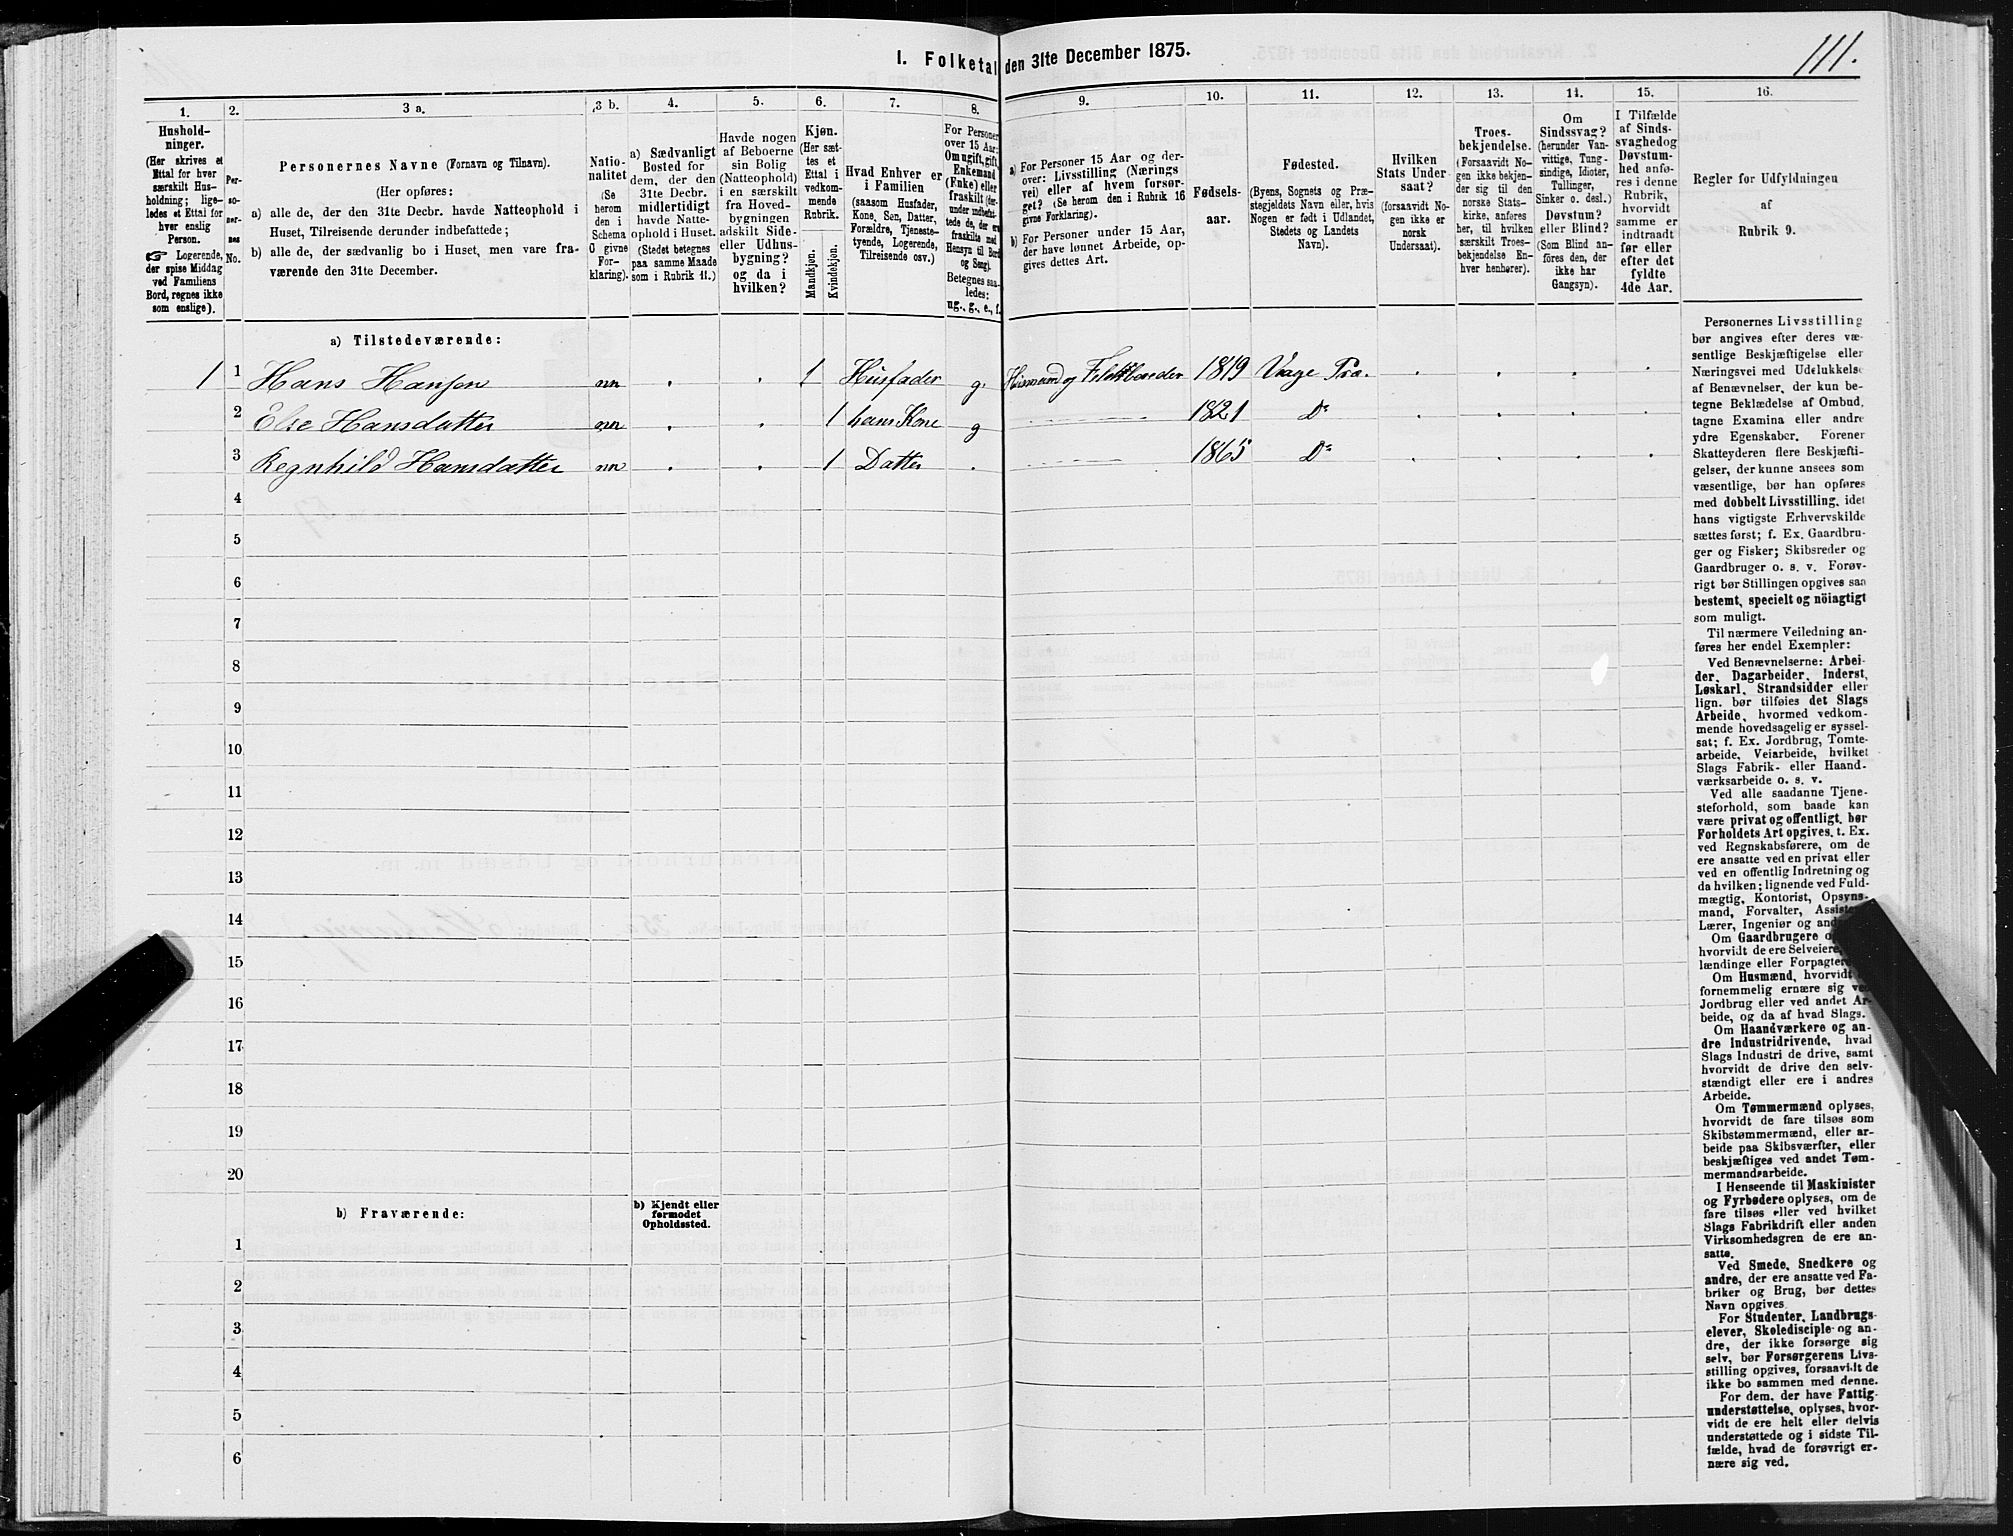 I. Folketal den 31te December 1875.
111.
1. 2. 3 a. 3 b. 4. 5. 6. 7. 8. 9. 10. 11. 12. 13. 14. 15. 16.
Hushold-
ninger.
(Her skrives et
Ettal for hver
særskilt Hus-
holdning; lige-
ledes et Ettal for
hver enslig
Person.
☞ Logerende,
der spise Middag
ved Familiens
Bord, regnes ikke
som enslige).
Per-
so-
ner-
nes
No.
Personernes Navne (Fornavn og Tilnavn).
(Her opføres:
a) alle de, der den 31te Decbr. havde Natteophold i
Huset, Tilreisende derunder indbefattede;
b) alle de, der sædvanlig bo i Huset, men vare fra-
værende den 31te December.
Natio-
nalitet
(Se
herom
den i
Schema
O givne
For-
klaring).
a) Sædvanligt
Bosted for
dem, der den
31te Decbr.
midlertidigt
havde Natte-
ophold i Huset.
(Stedet betegnes
paa samme Maade
som i Rubrik 11.)
Havde nogen
af Beboerne
sin Bolig
(Natteophold)
i en særskilt
fra Hoved-
bygningen
adskilt Side-
eller Udhus-
bygning?
og da i
hvilken?
Kjøn.
(Her sæt-
tes et
Ettal i
vedkom-
mende
Rubrik.
Mandkjøn.
Kvindekjøn.
Hvad Enhver er
i Familien
(saasom Husfader,
Kone, Søn, Datter,
Forældre, Tjeneste-
tyende, Logerende,
Tilreisende osv.)
For Personer
over 15 Aar:
Om ugift, gift,
Enkemand
(Enke) eller
fraskilt (der-
under indbefat-
tede de, der ere
fraskilte med
Hensyn til Bord
og Seng).
Betegnes saa-
ledes:
ug., g., e., f.
a) For Personer 15 Aar og der-
over: Livsstilling (Nærings
vei) eller af hvem forsør-
get? (Se herom den i Rubrik 16
givne Forklaring).
b) For Personer under 15 Aar,
der have lønnet Arbeide, op-
gives dettes Art.
Fødsels-
aar.
Fødested.
(Byens, Sognets og Præ-
stegjeldets Navn eller, hvis
Nogen er født i Udlandet,
Stedets og Landets
Navn).
Hvilken
Stats Under
saat?
(forsaavidt No-
gen ikke er
norsk
Undersaat).
Troes-
bekjendelse.
(Forsaavidt No-
gen ikke bekjen-
der sig til den
norske Stats-
kirke, anføres
her, til hvilken
særskilt Troes-
bekjendelse En-
hver henhører).
Om
Sindssvag?
(herunder Van-
vittige, Tung-
sindige, Idioter,
Tullinger,
Sinker o. desl.)
Døvstum?
eller Blind?
(Som Blind an-
føres den, der
ikke har
Gangsyn).
I Tilfælde
af Sinds-
svaghedog
Døvstum-
hed anfø-
res i denne
Rubrik,
hvorvidt
samme er
indtraadt
før eller
efter det
fyldte
4de Aar.
Regler for Udfyldningen
af
Rubrik 9.
a) Tilstedeværende:
1 1 Hans Hansen nn . . 1 Husfader g. Husmand og 1819 Vage Præ. . . . .
2 Else Hansdatter nn . . 1 hans Kone g 1821 Do . . . .
3 Regnhild Hansdatter nn . . 1 Datter . 1865 Do . . . .
4
5
6
7
8
9
10
11
12
13
14
15
16
17
18
19
20
b) Fraværende:
b) Kjendt eller
formodet
Opholdssted.
1
2
3
4
5
6
Personernes Livsstilling
bør angives efter deres væ-
sentlige Beskjæftigelse eller
Næringsvei med Udelukkelse
af Benævnelser, der kun be-
tegne Beklædelse af Ombud,
tagne Examina eller andre
ydre Egenskaber. Forener
Skatteyderen flere Beskjæfti-
gelser, der kunne ansees som
væsentlige, bør han opføres
med dobbelt Livsstilling, idet
hans vigtigste Erhvervskilde
sættes først; f. Ex. Gaardbru-
ger og Fisker; Skibsreder og
Gaardbruger o. s. v. Forøv-
rigt bør Stillingen opgives saa
bestemt, specielt og nöiagtigt
som muligt.
Til nærmere Veiledning an-
føres her endel Exempler:
Ved Benævnelserne: Arbei-
der, Dagarbeider, Inderst,
Løskarl, Strandsidder eller
lign. bør tilføies det Slags
Arbeide, hvormed vedkom-
mende hovedsagelig er syssel-
sat; f. Ex. Jordbrug, Tomte-
arbeide, Veiarbeide, hvilket
Slags Fabrik- eller Haand-
værksarbeide o. s. v.
Ved alle saadanne Tjene-
steforhold, som baade kan
være privat og offentligt, bør
Forholdets Art opgives, t. Ex.
ved Regnskabsførere, om de
ere ansatte ved en privat eller
ved en offentlig Indretning og
da hvilken; lignende ved Fuld-
mægtig, Kontorist, Opsyns-
mand, Forvalter,
Lærer, Ingeniør og
Om Gaardbrugere
hvorvidt de ere Selveiere,
lændinge eller
Om Husmænd, hvorvidt
fornemmelig ernære sig ved
Jordbrug eller ved andet Ar-
beide, og da af hvad Slags.
Om Haandværkere og an-
dre Industridrivende, hvad
Slags Industri de drive, samt
hvorvidt de drive den selv-
stændigt eller ere i andres
Arbeide.
Om Tømmermænd oplyses,
hvorvidt de fare tilsøs som
Skibstømmermænd, eller ar-
beide paa Skibsværfter, eller
beskjæftiges ved andet Tøm-
mermandsarbeide.
I Henseende til Maskinister
og Fyrbødere oplyses, om de
fare tilsøs eller ved hvilket
Slags Fabrikdrift eller anden
Virksomhedsgren de ere an-
satte.
Ved Smede, Snedkere og
andre, der ere ansatte ved Fa-
briker og Brug, bør dettes
Navn opgives.
For Studenter, Landbrugs-
elever, Skoledisciple og an-
dre, der ikke forsørge sig
selv, bør Forsørgerens Livs-
stilling opgives, forsaavidt de
ikke bo sammen med denne.
For dem, der have Fattig-
understøttelse, oplyses, hvor-
vidt de ere helt eller delvis
understøttede og i sidste Til-
fælde, hvad de forøvrigt er-
nære sig ved.